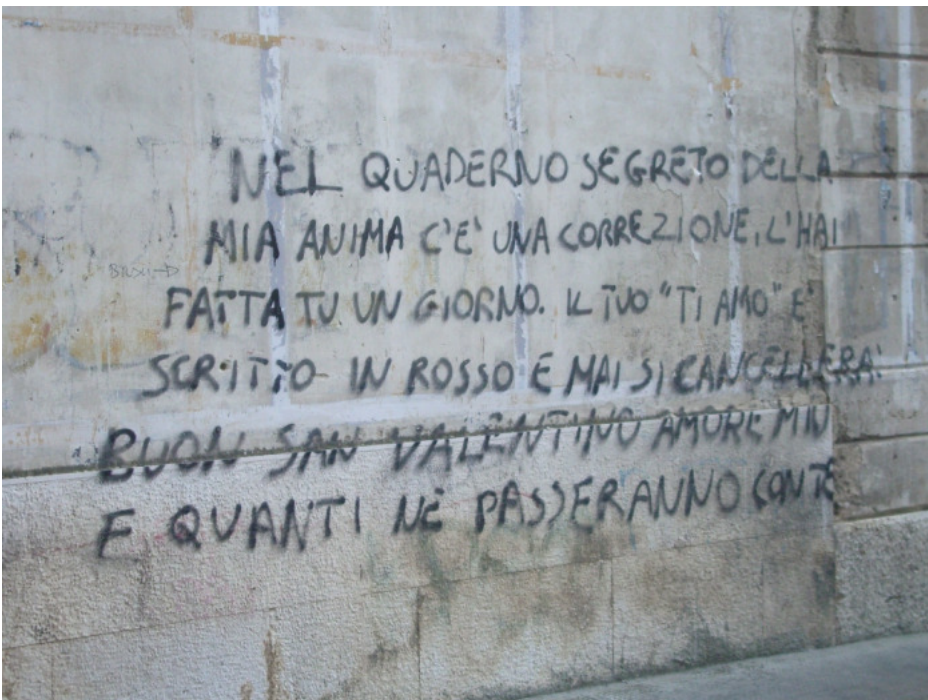 NEL QUADERNO SEGRETO DELLA
MIA ANIMA C'E' UNA CORREZIONE, L'HAI
FATTA TU UN GIORNO. IL TUO "TI AMO" E'
SCRITTO IN ROSSO E MAI SI CANCELLERA'
BUON SAN VALENTINO AMORE MIO
E QUANTI NE PASSERANNO CON TE